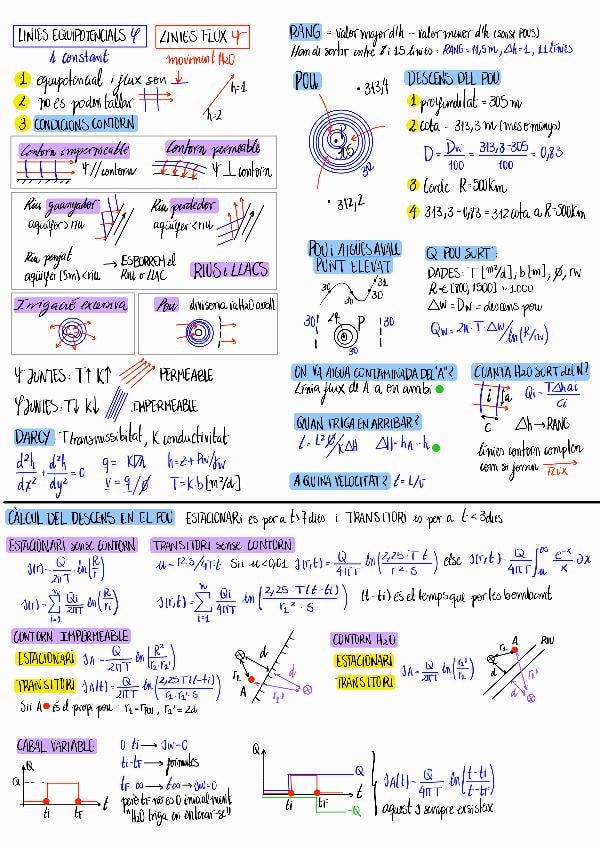 LINIES EQUIPOTENCIALS φ
LINIES FLUX Ψ
h constant
moviment H2O
1 equipotencial i flux son ⊥
2 no es poden tallar
3 CONDICIONS CONTORN
h=1
h=2
Contorn impermeable
Ψ // contorn
Contorn permeable
Ψ ⊥ contorn
Riu guanyador
aqüifer > riu
Riu perdedor
aqüifer < riu
Riu penjat
aqüifer (5m) < riu
→ ESBORREM el
RIU o LLAC
RIUS i LLACS
Irrigació excessiva
Pou
divisoria
Ψ JUNTES: T↑ K↑
PERMEABLE
φ JUNTES: T↓ K↓
IMPERMEABLE
DARCY
T transmissibitat, K conductivitat
d²h/dx² + d²h/dy² = 0
q = K∇h
v = q/∅
h = z + Pw/γw
T = K·b [m²/d]
RANG = valor major d'h - valor menor d'h (sense POUS)
Han de sortir entre 7 i 15 línies: RANG = 11,5m, Δh=1, 11 línies
POU
• 313,4
P
305
312
• 312,2
DESCENS DEL POU
1 profunditat = 305 m
2 cota = 313,3 m (mes o menys)
D = Dw/100 = 313,3-305/100 = 0,83
3 Corde R=500Km
4 313,3-0,83 = 312 cota a R=500Km
POU i AIGUES AVALL
PUNT ELEVAT
30
31
31
30
30
29
P
30
Q POU SURT:
DADES: T [m²/d], b [m], ∅, rw
R ∈ [700, 1500] ~ 1000
Δw = Dw = descens pou
Qw = 2π·T·Δw/ln(R/rw)
ON VA AIGUA CONTAMINADA DEL "A"?
Línia flux de A a on arribi
QUAN TRIGA EN ARRIBAR?
t = L²∅/KΔh
Δh = hA - h
A QUINA VELOCITAT?
t = L/v
CUANTA H2O SURT del N?
i
a
c
Qi = TΔhai/ci
Δh → RANG
línies contorn complen
com si fossin FLUX
CÀLCUL DEL DESCENS EN EL POU
ESTACIONARI es per a t>7dies i TRANSITORI es per a t<3dies
ESTACIONARI sense CONTORN
s(r) = Q/2πT ln(R/r)
s(r) = Σ i=1 n Qi/2πT ln(R/ri)
TRANSITORI sense CONTORN
u = r²·S/4πT·t Si u<0,01 s(r,t) = Q/4πT ln(2,25·T·t/r²·S) else s(r,t) = Q/4πT ∫u ∞ e⁻ˣ/x dx
s(r,t) = Σ i=1 n Qi/4πT ln(2,25·T(t-ti)/ri²·S) (t-ti) és el temps que porles bombeant
CONTORN IMPERMEABLE
ESTACIONARI sA = Q/2πT ln(R²/r1·r1')
TRANSITORI sA(t) = Q/2πT ln(2,25T(t-ti)/r1·r1'·S)
Si A és el propi pou r1 = rpou, r1' = 2d
r1
d
A
d
r1'
CONTORN H2O
ESTACIONARI
TRANSITORI
sA = Q/2πT ln(r1'/r1)
A
RIU
r1
d
d
r1'
CABAL VARIABLE
Q
Q
ti
tF
t
0-ti → sw=0
ti-tF → formules
tF-∞ → t∞ → sw=0
però tF no es 0 inicialment
"H2O triga en enterar-se"
Q
Q
ti
tF
t
-Q
sA(t) = Q/4πT ln(t-ti/t-tF)
aquest s sempre existeix